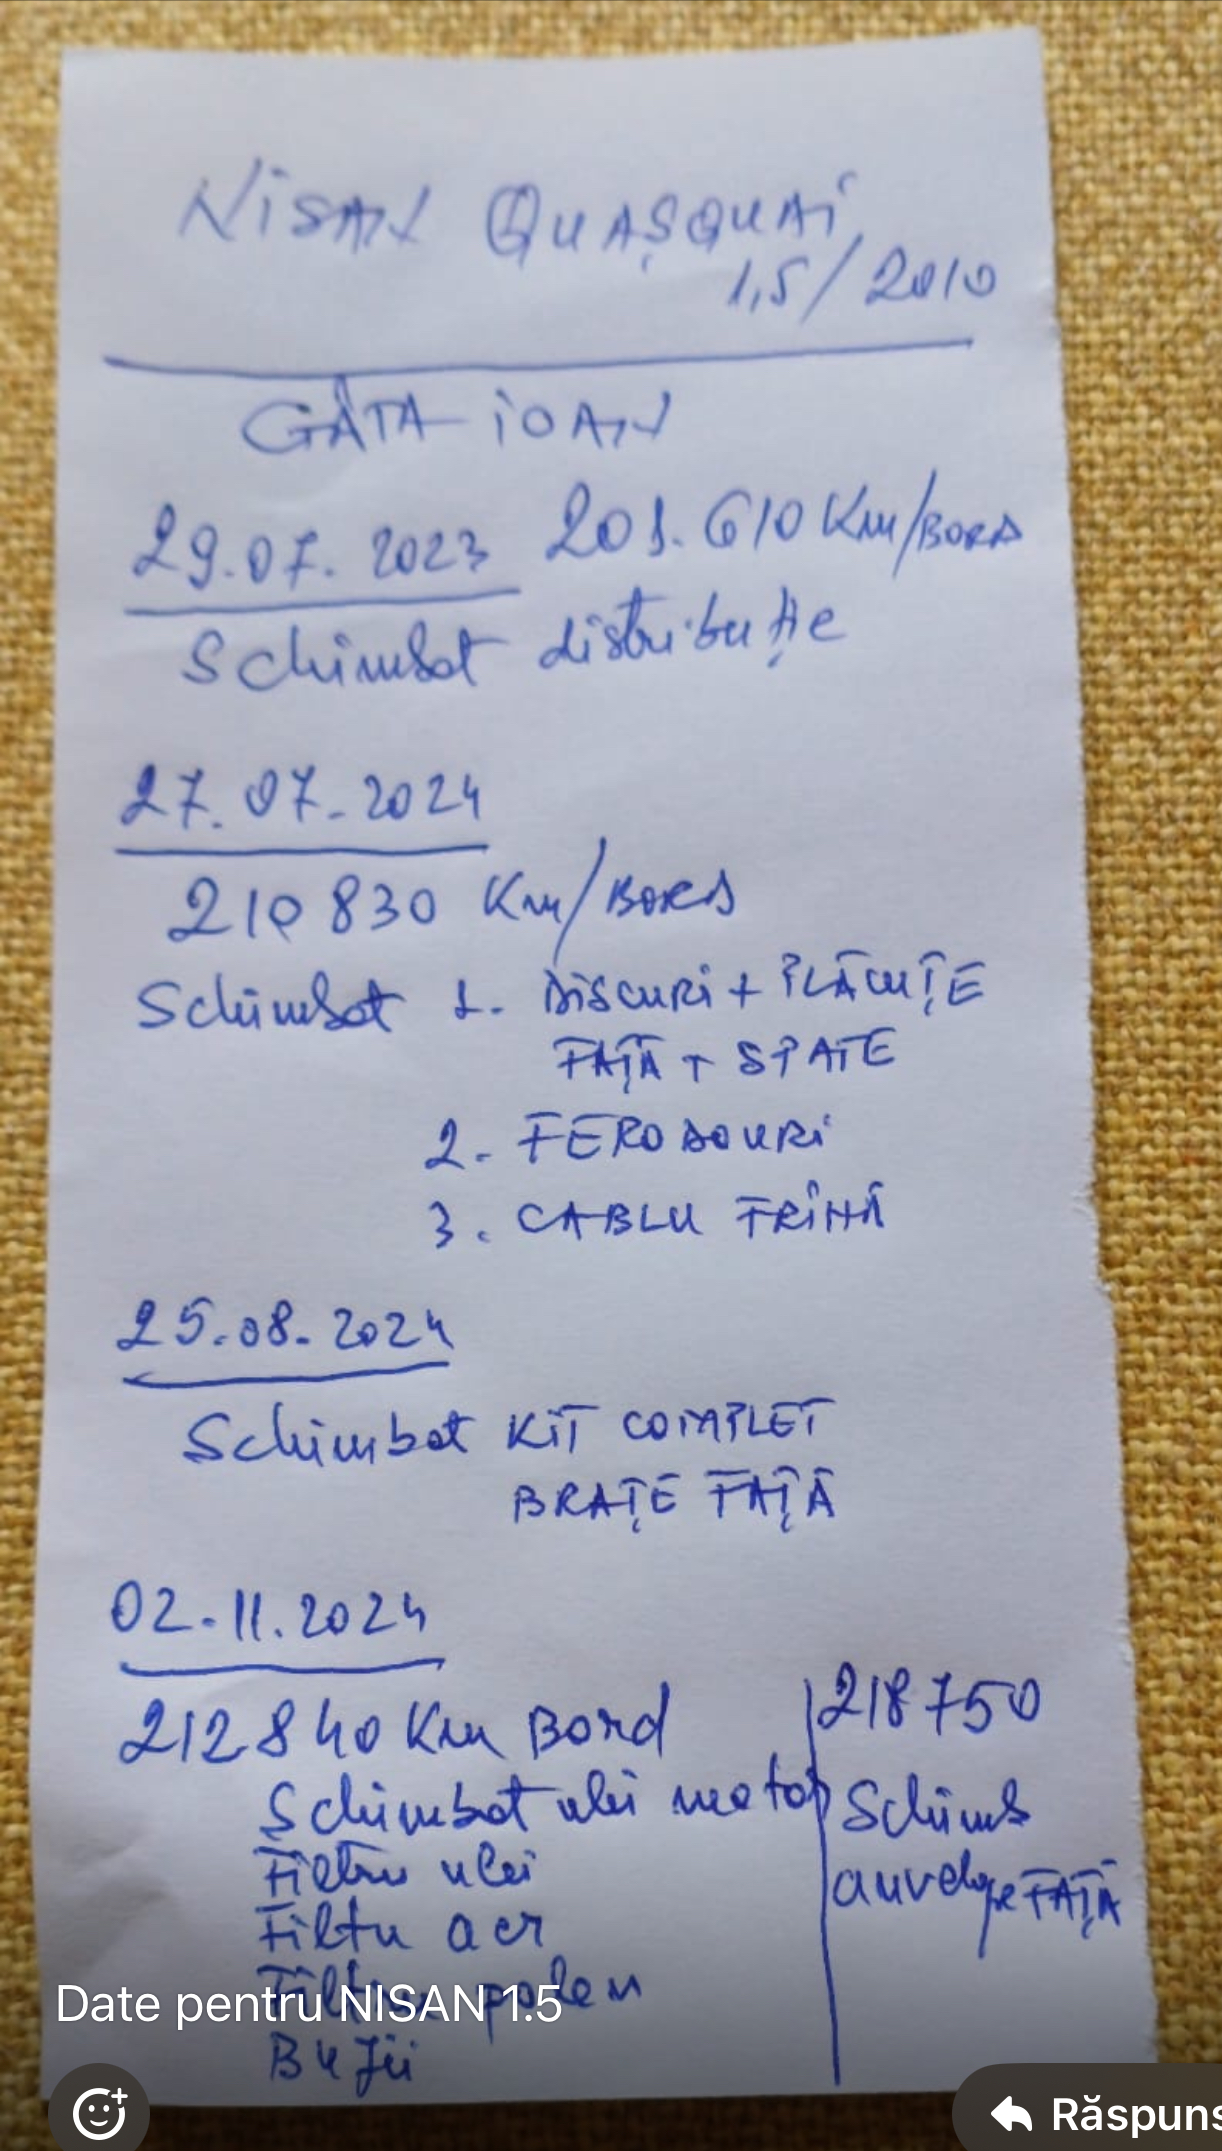 NiSAN QUAȘQUAi
1,5/2010
GÂTA iOAN
29.07.2023 201.610 Km/BORD
Schimbat distribuție
27.07.2024
210830 Km/BORD
Schimbat 1. DiSCURi + PLĂCUȚE
FAȚĂ + SPATE
2. FERODOURi
3. CABLU FRÎNĂ
25.08.2024
Schimbat KiT COMPLET
BRAȚE FAȚĂ
02.11.2024
212840 Km Bord
Schimbat ulei motor
Filtru ulei
Filtru aer
Filtru polen
Bujii
218750
Schimb
anvelope FAȚĂ
Date pentru NISAN 1.5
Răspuns